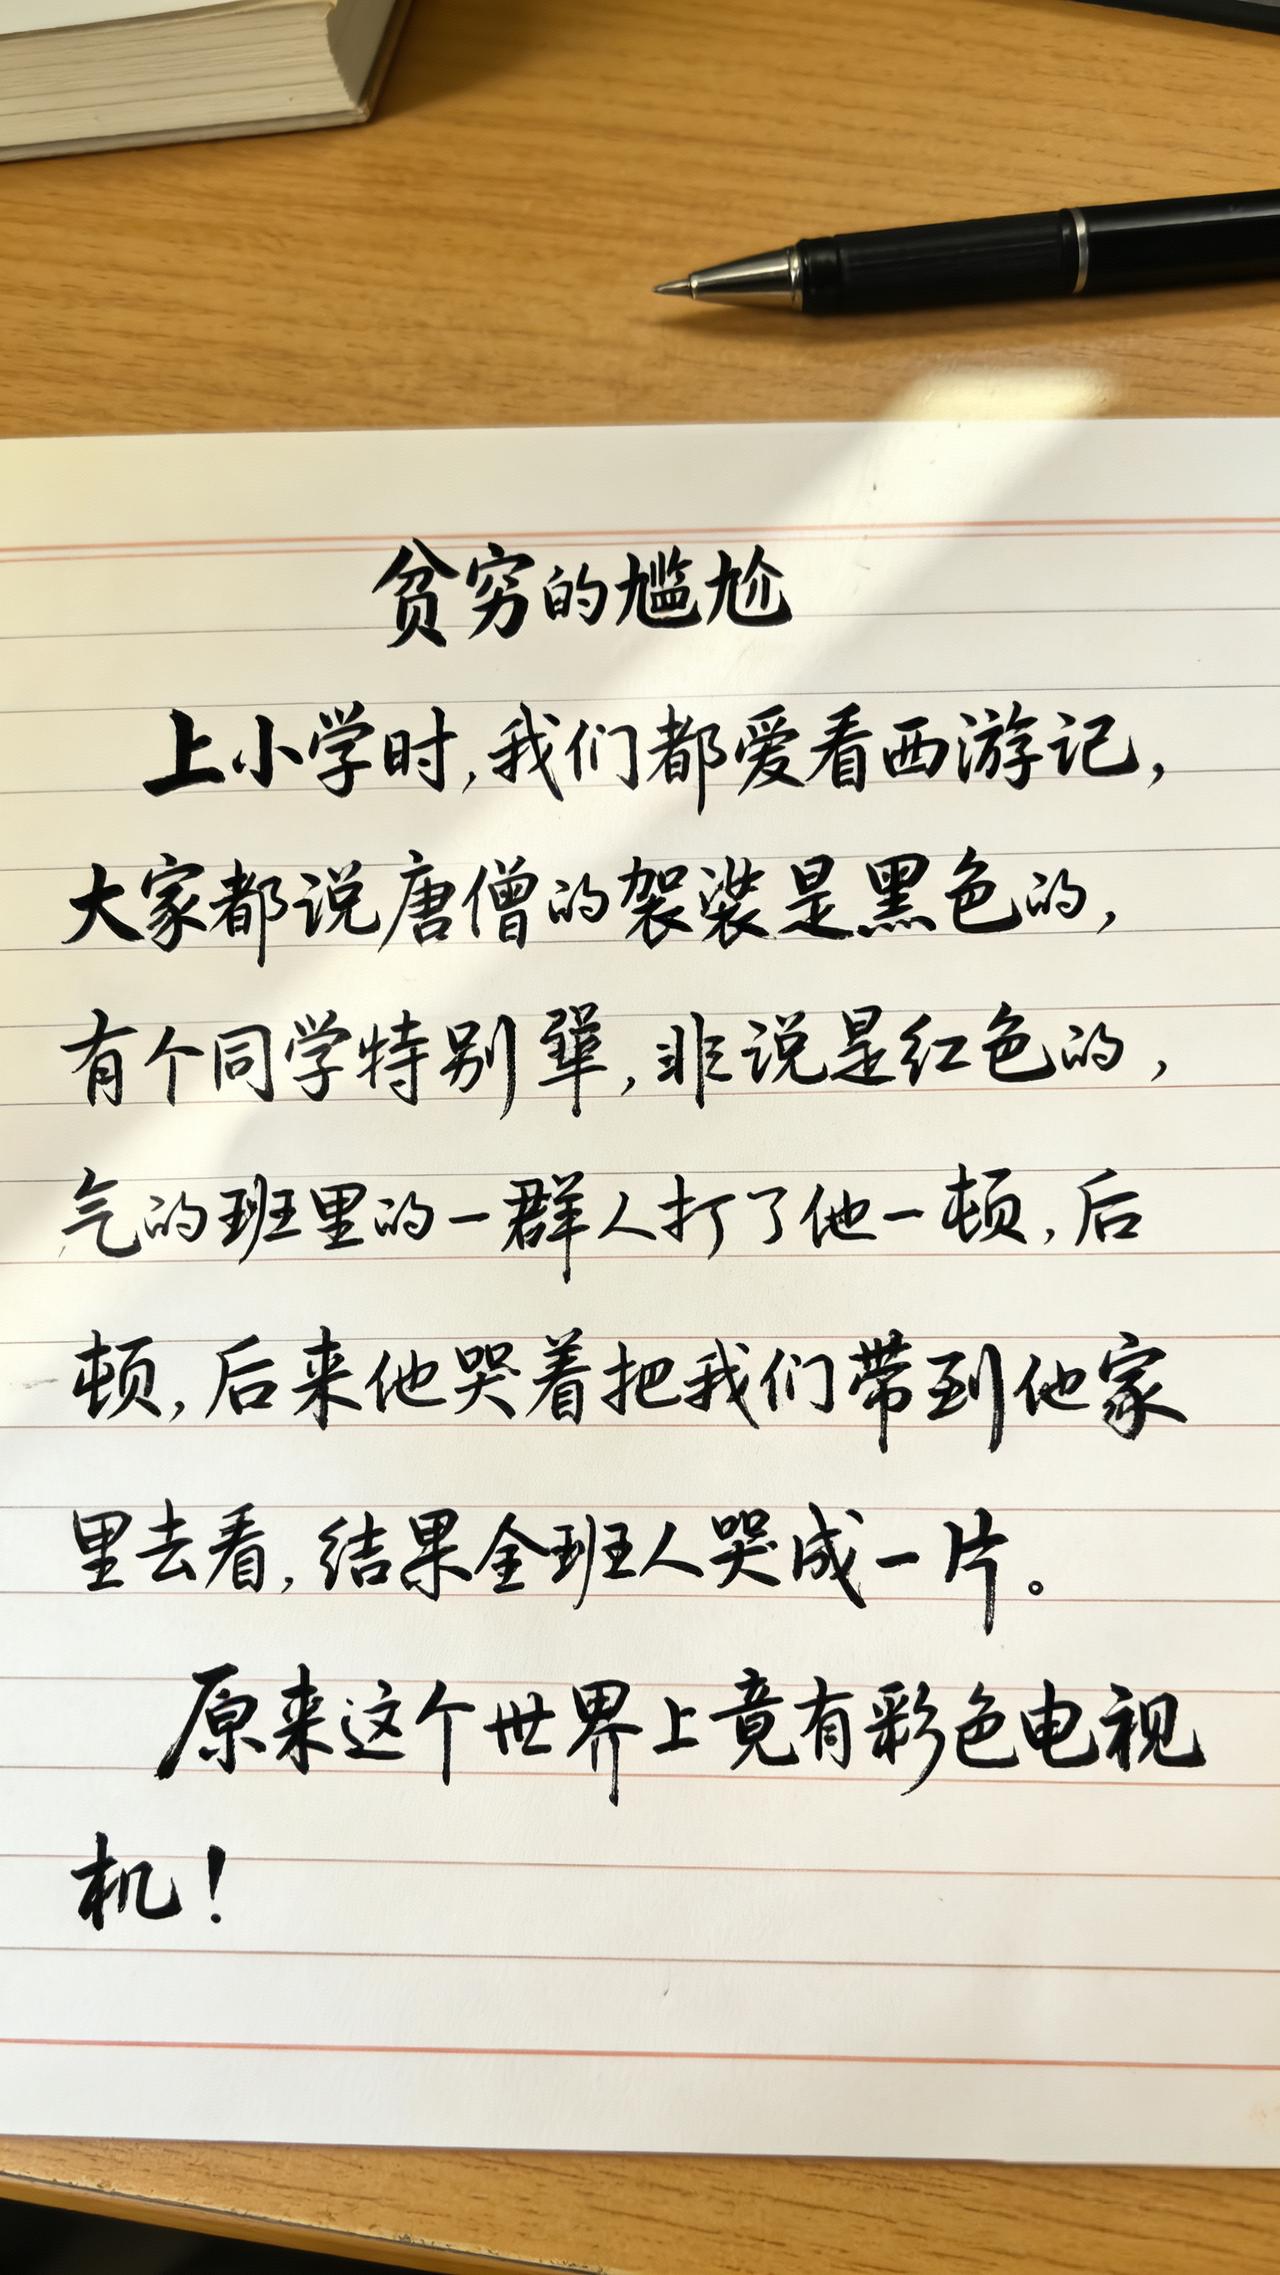 贫穷的尴尬
上小学时,我们都爱看西游记,
大家都说唐僧的袈裟是黑色的,
有个同学特别犟,非说是红色的,
气的班里的一群人打了他一顿,后
顿,后来他哭着把我们带到他家
里去看,结果全班人哭成一片。
原来这个世界上竟有彩色电视
机!